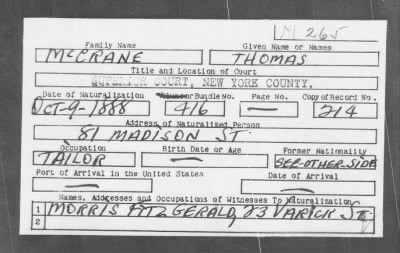 M 265
Family Name Given Name or Names
McCRANE THOMAS
Title and Location of Court
SUPERIOR COURT, NEW YORK COUNTY.
Date of Naturalization Volume or Bundle No. Page No. Copy of Record No.
Oct-9-1888 416 — 214
Address of Naturalized Person
81 MADISON ST.
Occupation Birth Date or Age Former Nationality
TAILOR — SEE-OTHER-SIDE
Port of Arrival in the United States Date of Arrival
— —
Names, Addresses and Occupations of Witnesses To Naturalization
1 MORRIS FITZGERALD, 23 VARICK ST.
2